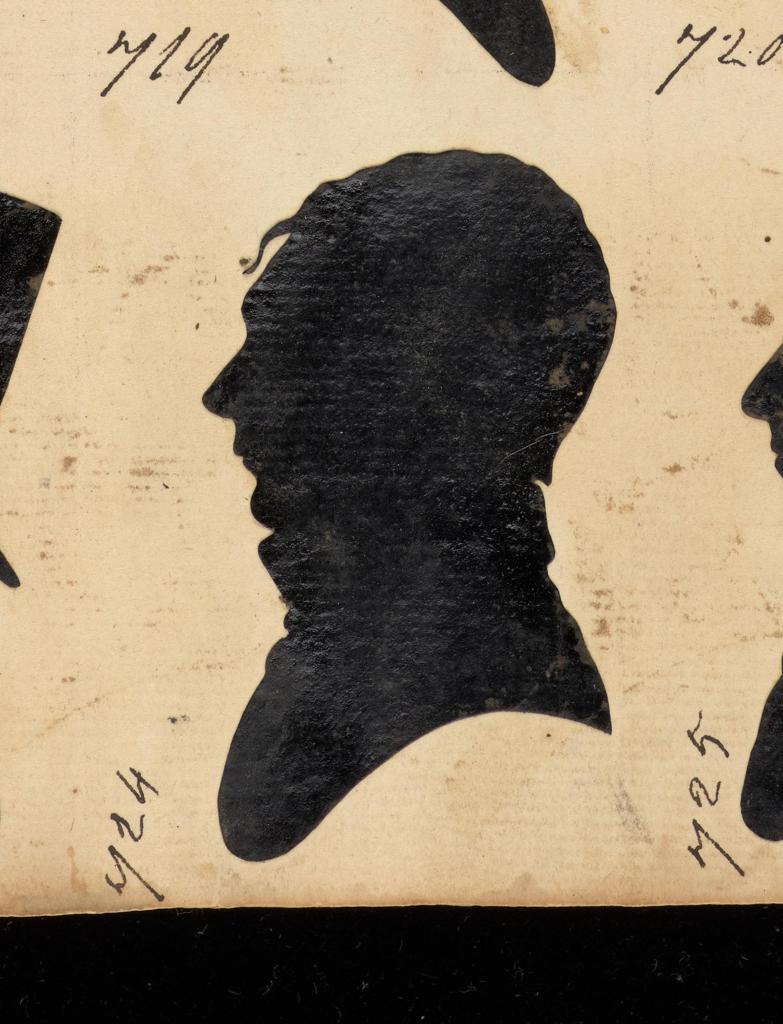 719
720
724
725